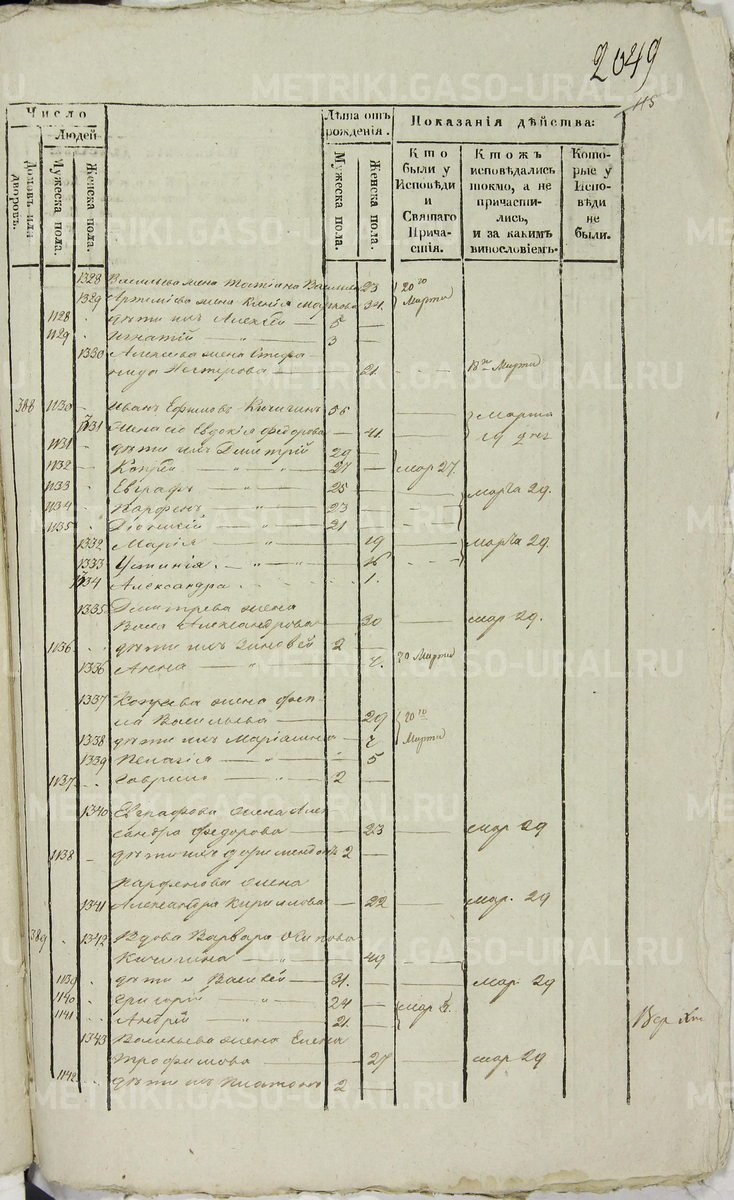 2049
115
METRIKI.GASO-URAL.RU
Число
Людей
Домовъ или дворовъ.
Мужеска пола.
Женска пола.
Лѣта отъ рожденія.
Мужеска пола.
Женска пола.
Показанія дѣйства:
Кто были у Исповѣди и Святаго Причастія.
Ктожъ исповѣдались токмо, а не причастились, и за какимъ винословіемъ.
Которые у Исповѣди не были.
1328 Васильева жена Татіана 23 20го
1329 Артеміева жена Ксенія Маркова 34. Марта
1128 дѣти ихъ Алексѣй 5
1129 Игнатій 3
1330 Алексѣева жена Стефа-
нида Нестерова 21. Марта
388 1130 Иванъ Ефимовъ Кичигинъ 56 Марта
1331 Жена его Евдокія Федорова 41. 29 дня
1131 дѣти ихъ Димитрій 29
1132 27 мар 27.
1133 Евграфъ 25 марта 29.
1134 Парфенъ 23
1135 Діонисій 21
1332 Марія 19 марта 29.
1333 Устинія 16
1334 Александра 1.
1335 Дмитрева жена
Васса Александрова 30 мар 29.
1136 дѣти ихъ Зиновей 2
1336 Анна 20 Марта
1337 жена Фек-
ла Васильева 29 20го
1338 дѣти ихъ Маріамна 7 Марта
1339 Пелагія 5
1137 Гаврило 2
1340 Евграфова жена Алек-
сандра Федорова 23 мар 29
1138 дѣти ихъ 2
Парфенова жена
1341 Александра Кирилова 22 мар. 29
389 1342 Вдова Варвара Осипова
Кичигина 49
1139 дѣти ея Василей 31. мар 29
1140 Григорій 24 мар
1141 Андрей 21.
1343 Васильева жена Елена
Трофимова 27 мар 29
1142 дѣти ихъ Платонъ 2